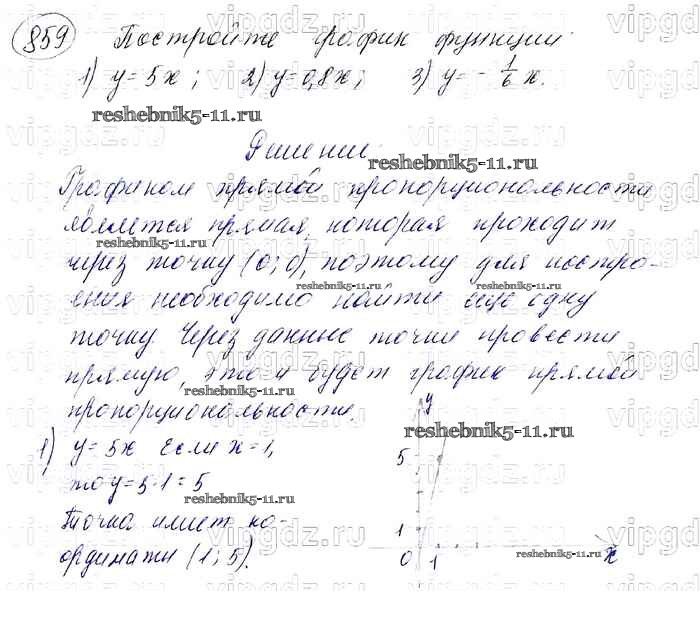 859 Постройте график функции:
1) y = 5x; 2) y = 0,8x; 3) y = - 1/6 x.
reshebnik5-11.ru
Решение.
reshebnik5-11.ru
Графиком прямой пропорциональности
является прямая, которая проходит
reshebnik5-11.ru
через точку (0; 0), поэтому для постро-
reshebnik5-11.ru
ения необходимо найти еще одну
точку. Через данные точки провести
прямую, это и будет график прямой
reshebnik5-11.ru
пропорциональности.
reshebnik5-11.ru
1) y = 5x Если x = 1,
то y = 5·1 = 5
reshebnik5-11.ru
Точка имеет ко-
ординаты (1; 5).
y
5
1
0 1 x
reshebnik5-11.ru
vipgdz.ru